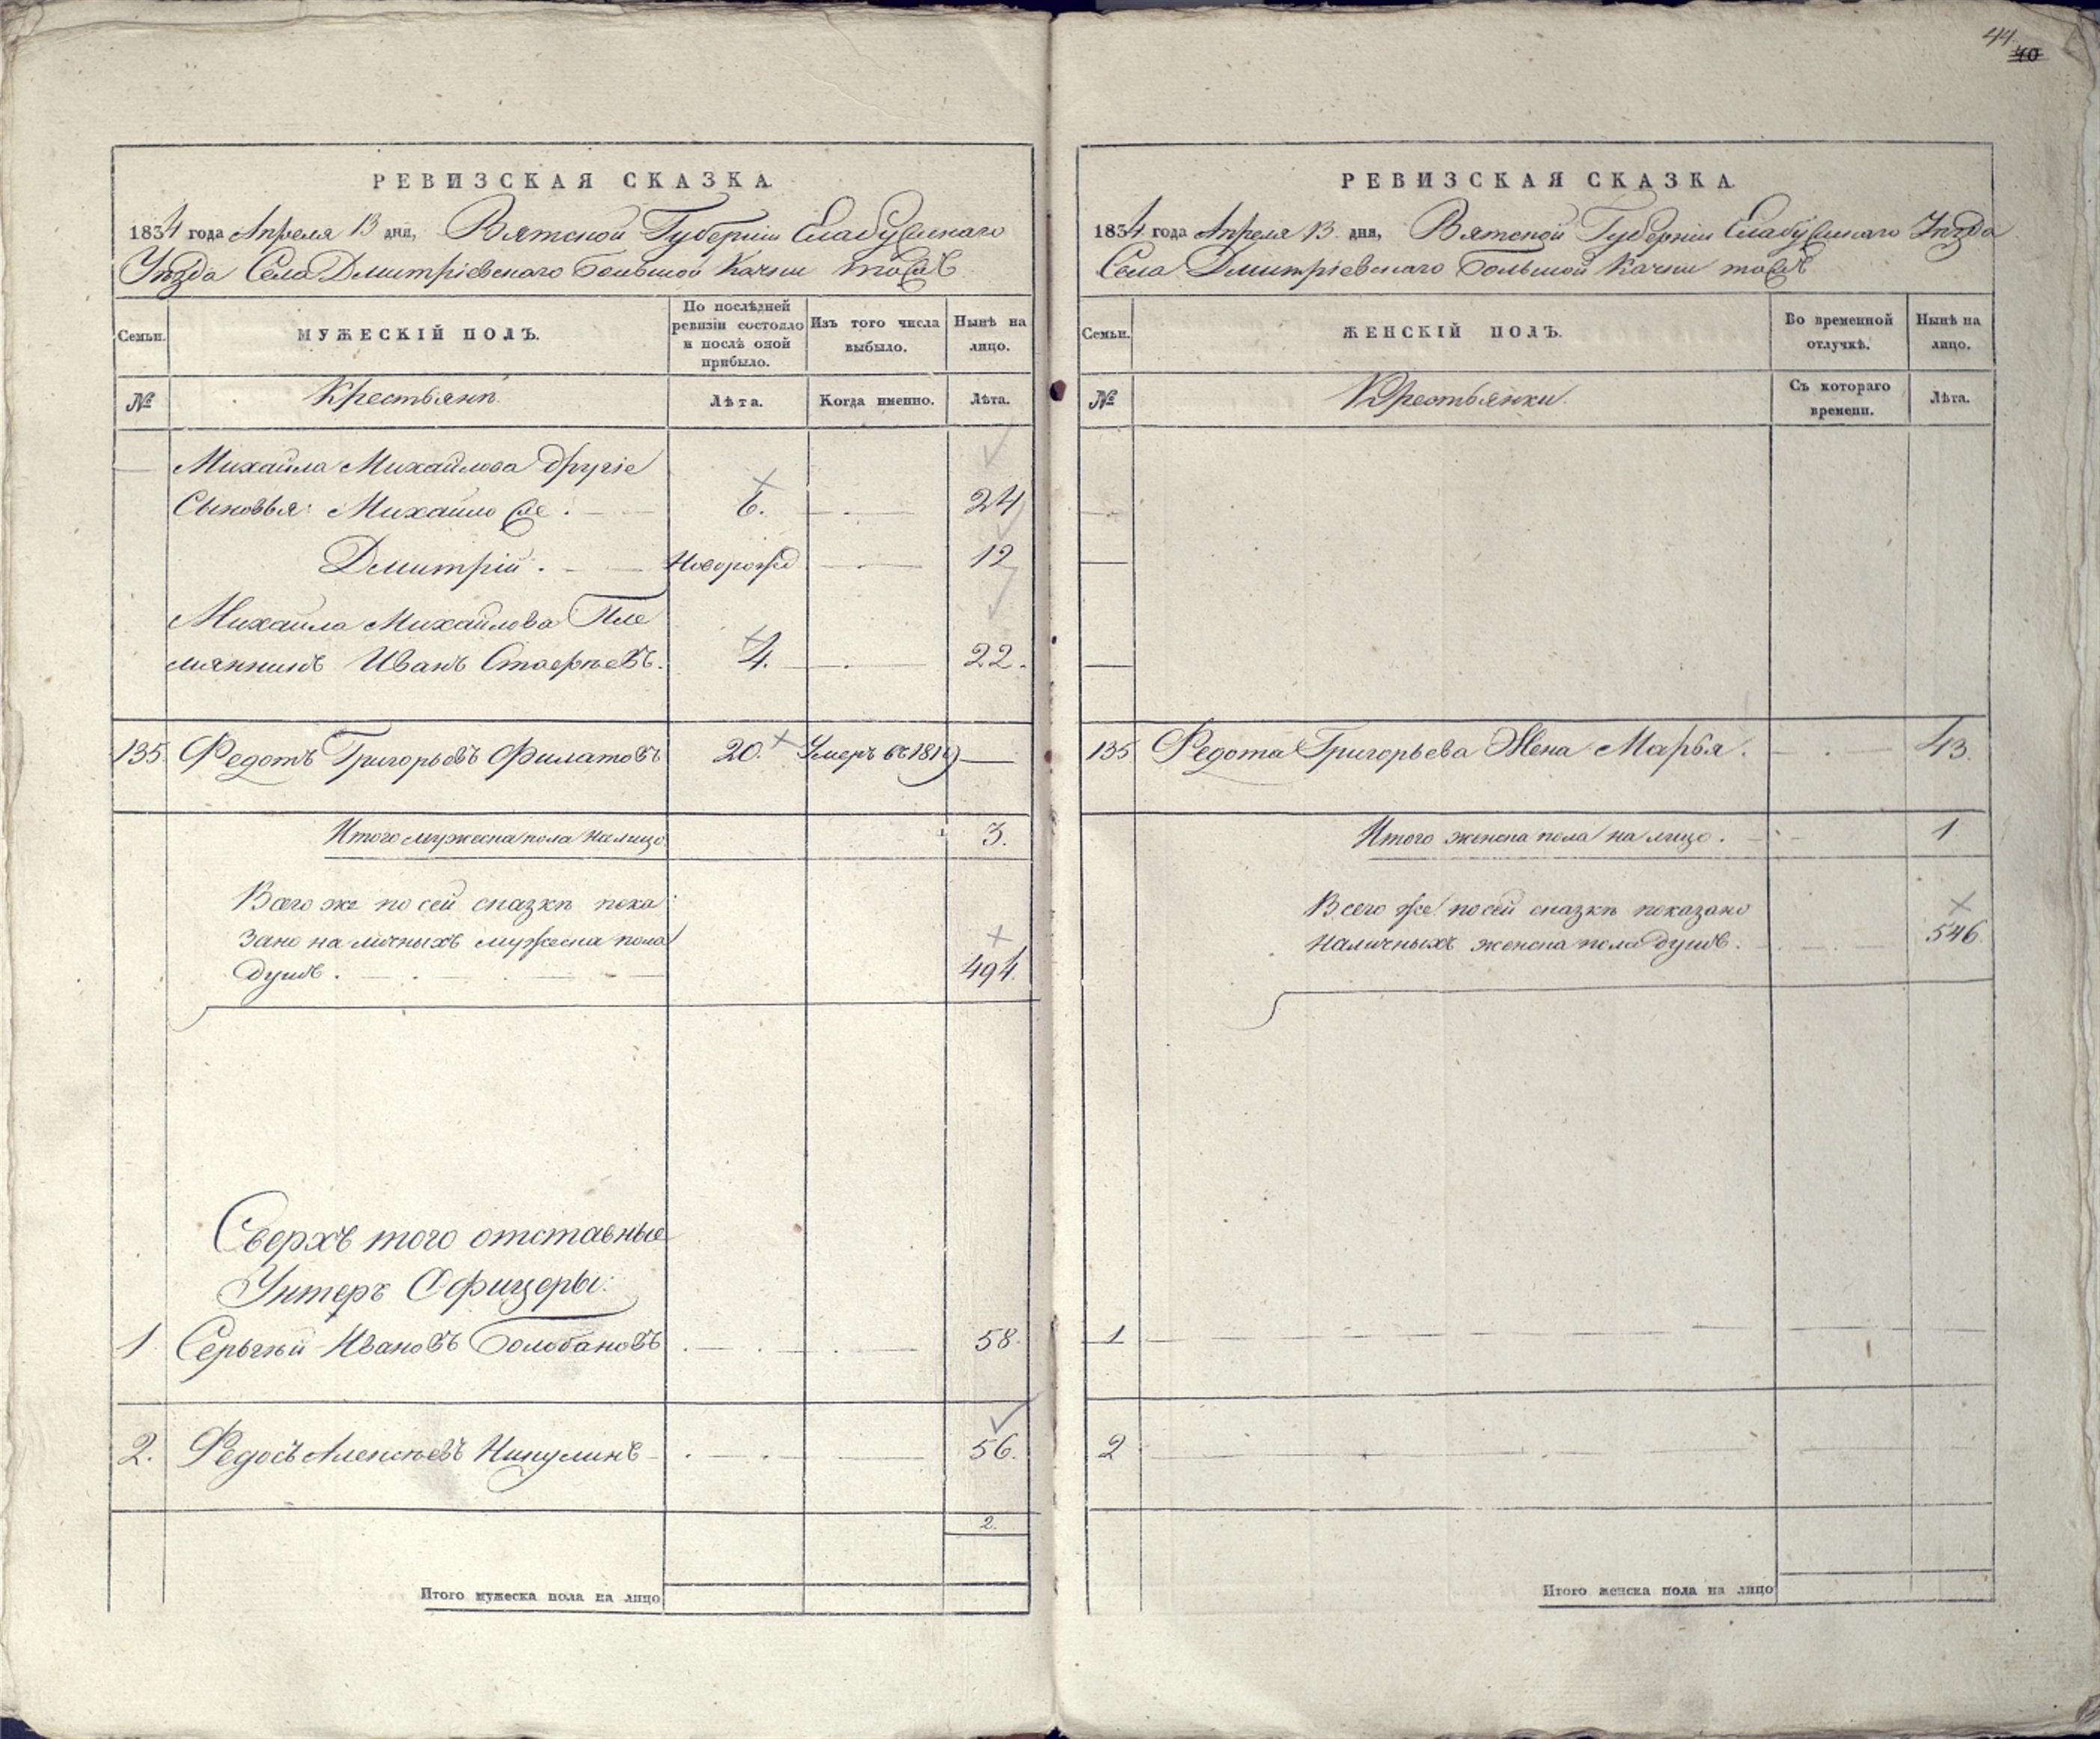 44.
40
РЕВИЗСКАЯ СКАЗКА.
1834 года Апреля 13 дня, Вятской Губерніи Елабужскаго
Уѣзда Села Дмитріевскаго Большой Качки тожъ
Семьи.
МУЖЕСКІЙ ПОЛЪ.
По послѣдней
ревизіи состояло
и послѣ оной
прибыло.
Изъ того числа
выбыло.
Нынѣ на
лицо.
№
Крестьянъ
Лѣта.
Когда именно.
Лѣта.
Михаила Михайлова другіе
Сыновья: Михайло 6. 24
Дмитрій. Новорожд 12
Михаила Михайлова Пле
мянникъ Иванъ 4. 22.
135 Федотъ Григорьевъ Филатовъ 20. Умеръ въ 1819
Итого мужеска пола на лицо 3.
Всего же по сей сказкѣ пока
зано на личныхъ мужеска пола
душъ. 494.
Сверхъ того отставные
Унтеръ Офицеры:
1. Серьгѣй Ивановъ Болобановъ 58.
2. Федосъ Алексѣевъ Никулинъ 56.
2.
Итого мужеска пола на лицо
РЕВИЗСКАЯ СКАЗКА.
1834 года Апреля 13 дня, Вятской Губерніи Елабужскаго Уѣзда
Села Дмитріевскаго Большой Качки тожъ
Семьи.
ЖЕНСКІЙ ПОЛЪ.
Во временной
отлучкѣ.
Нынѣ на
лицо.
№
Крестьянки.
Съ котораго
времени.
Лѣта.
135 Федота Григорьева Жена Марья. 43.
Итого женска пола на лицо. 1
Всего же по сей сказкѣ показано
наличныхъ женска пола душъ. 546.
1
2
Итого женска пола на лицо